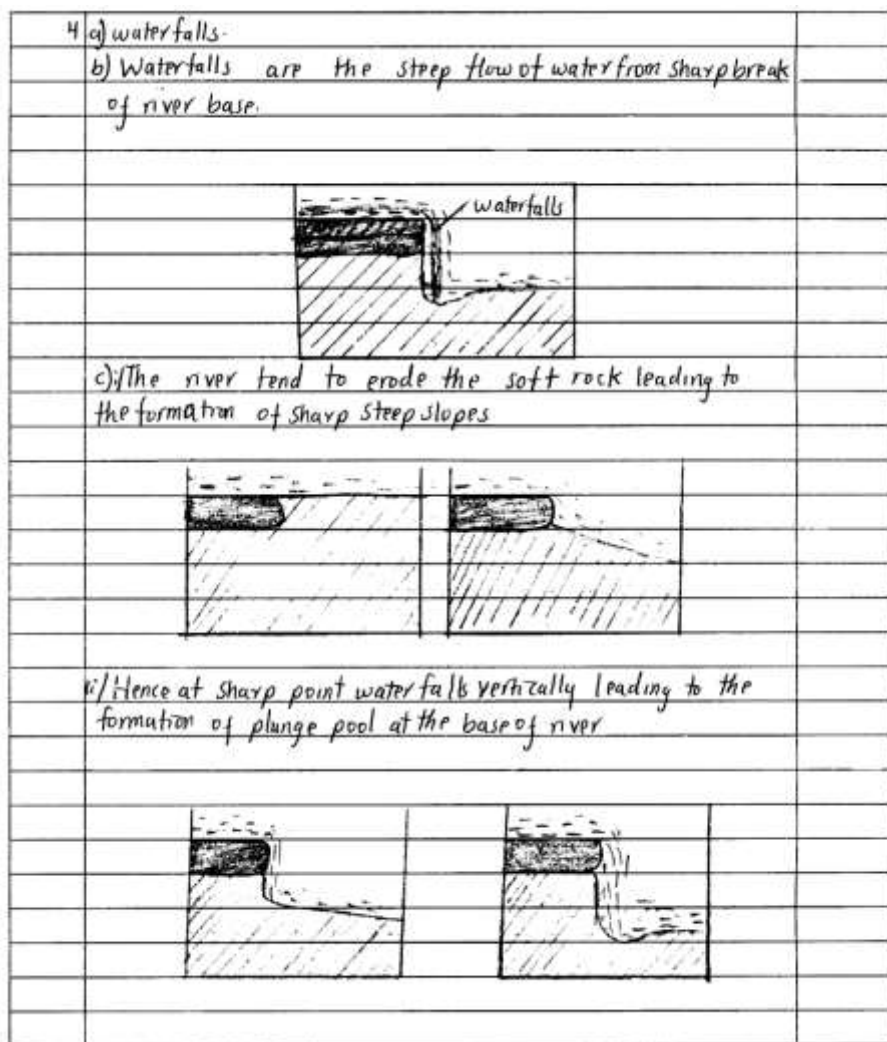 4 a) waterfalls.
b) Waterfalls are the steep flow of water from sharp break
of river base.
waterfalls
c) i/ The river tend to erode the soft rock leading to
the formation of sharp steep slopes
ii/ Hence at sharp point water falls vertically leading to the
formation of plunge pool at the base of river